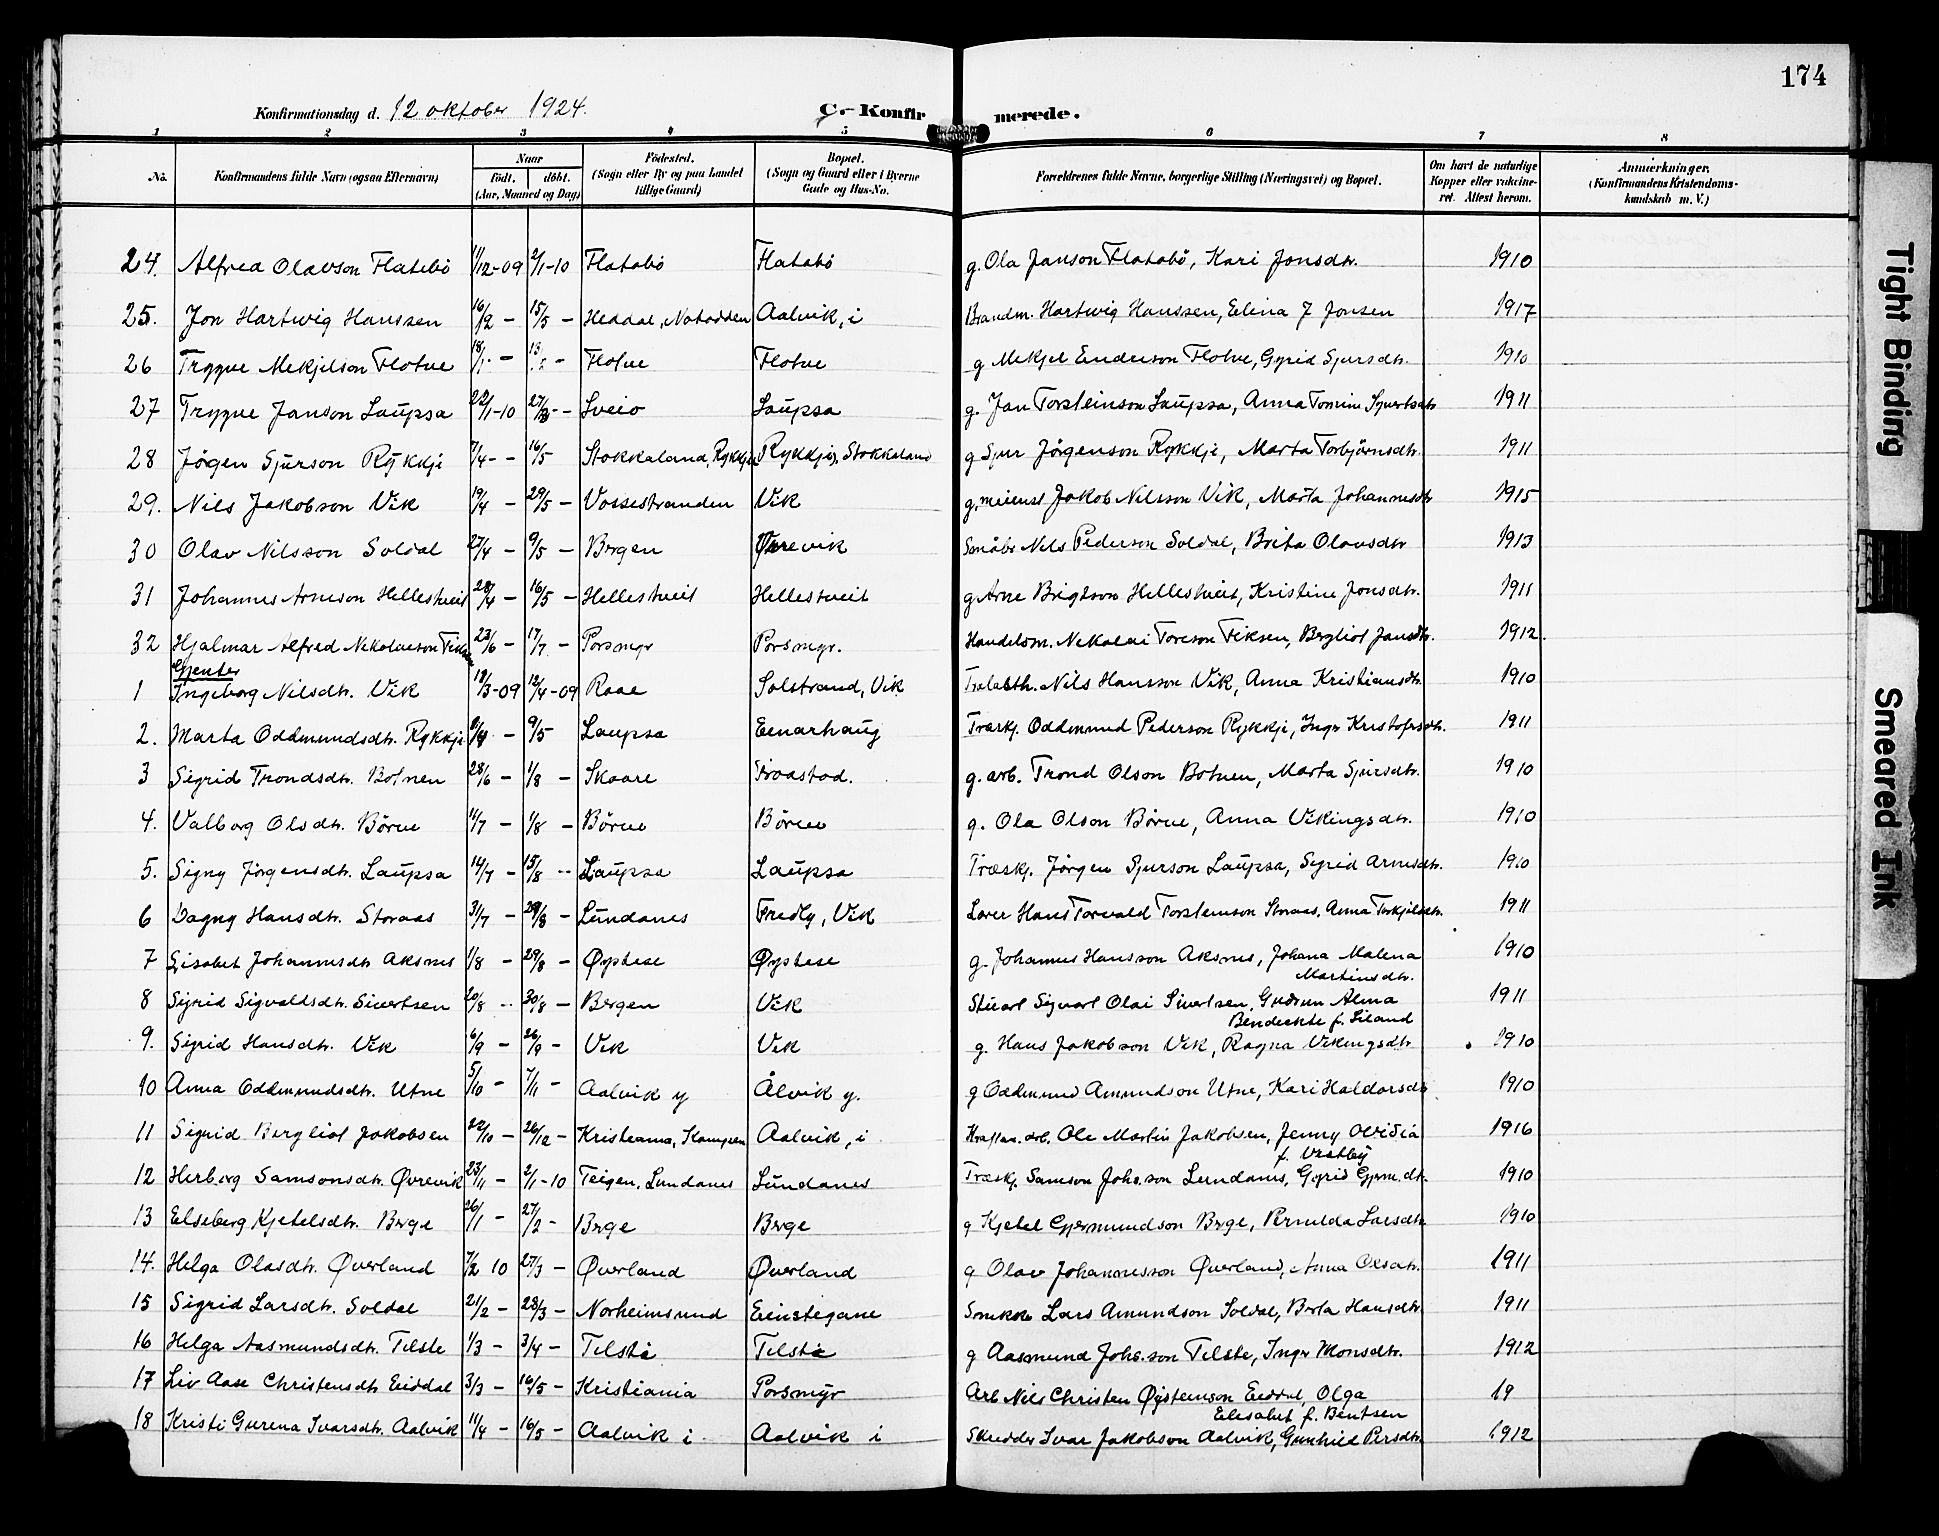 174
Konfirmationsdag d. 12 oktober 1924.
C.- Konfirmerede.
1 2 3 4 5 6 7 8
No. Konfirmandens fulde Navn (ogsaa Efternavn) Naar født. døbt. (Aar, Maaned og Dag) Fødested. (Sogn eller By og paa Landet tillige Gaard) Bopæl. (Sogn og Gaard eller i Byerne Gade og Hus-No. Forældrenes fulde Navne, borgerlige Stilling (Næringsvei) og Bopæl. Om havt de naturlige Kopper eller vakcineret. Attest herom. Anmærkninger. (Konfirmandens Kristendomskundskab m. V.)
24. Alfred Olavson Flatebö 11/12-09 2/1-10 Flatabö Flatabö g. Ola Janson Flatabö, Kari Jonsdtr. 1910
25. Jon Hartwig Hanssen 16/2 - 15/5 - Heddal, Notodden Aalvik, i Brandm. Hartwig Hanssen, Elina J Jonsen 1917
26 Trygve Mekjelson Flotve 18/1 - 13/ - Flotve Flotve g Mekjel Endreson Flotve, Gyrid Sjursdtr. 1910
27 Trygve Janson Laupsa 22/1-10 27/3 - Sveio Laupsa g. Jan Torsteinson Laupsa, Anna Tomine Sjurtsdtr 1911
28 Jögen Sjurson Rykkje 7/4 - 16/5 Stokkaland, Rykkje Rykkje, Stokkaland g Sjur Jörgenson Rykkje, Marta Torbjörnsdtr. 1911
29. Nils Jakobson Vik 19/4 - 29/5 - Vossestranden Vik g. meierist Jakob Nilsson Vik, Marta Johannesdtr 1915
30 Olav Nilsson Soldal 27/4 - 9/5 - Bergen Øvrevik Småbr Nils Pederson Soldal, Brita Olavsdtr 1913
31 Johannes Arneson Hellestveit 28/4 - 16/5 - Hellestveit Hellestveit g Arne Brigtson Hellestveit, Kristine Jonsdtr. 1911
32 Hjalmar Alfred Nikolaeson Fiksen 23/6 - 17/7 - Porsmyr Porsmyr. Handelsm. Nikolai Toreson Fiksen, Bergliot Jansdtr. 1912.
Gjenter
1 Ingeborg Nilsdtr. Vik 18/3-09 12/4-09 Raae Solstrand, Vik Nils Hansson Vik, Anna Kristiansdtr. 1910
2. Marta Oddmundsdtr. Rykkje /4 - 9/5 - Laupsa Einarhaug Træskj. Oddmund Pederson Rykkje, Inger Kristofersdtr. 1911
3 Sigrid Trondsdtr. Botnen 28/6 - 1/8 - Skaare Froastad. g. arb. Trond Olson Botnen, Marta Sjursdtr. 1910
4. Valborg Olsdtr. Börve 11/7 - 1/8 - Börve Börve g. Ola Olson Börve, Anna Vikingsdtr. 1910
5. Signy Jörgensdtr. Laupsa 14/7 - 15/8 - Laupsa Laupsa Træskj. Jörgen Sjurson Laupsa, Sigrid Arnesdtr. 1910
6 Dagny Hansdtr. Storaas 31/7 - 29/8 - Lundanes Fredly, Vik Lærer Hans Torvald Torsteinson Storaas, Anna Torkjelsdtr. 1911
7 Lisabet Johannesdtr Aksnes 1/8 - 29/8 - Øystese Øystese g. Johannes Hansson Aksnes, Johana Malena
Martinsdtr. 1910
8 Sigrid Sigvaldsdtr. Sivertsen 20/8 - 30/8 - Bergen Vik Stuart Sigvart Olai Sivertsen, Gudrun Alma
Bendickte f. Liland 1911
9. Sigrid Hansdtr. Vik 6/9 - 26/9 - Vik Vik g. Hans Jakobson Vik, Ragna Vikingsdtr 1910
10 Anna Oddmundsdtr. Utne 5/10 - 7/11 - Aalvik y Ålvik y. g Oddmund Amundson Utne, Kari Haldorsdtr 1910
11 Sigrid Bergliot Jakobsen 22/10 - 26/12 - Kristiania, Kampen Aalvik, i Kraftan. arb. Ole Martin Jakobsen, Jenny Ovidia
f. Vestby 1916
12 Herborg Samsonsdtr. Øvrevik 23/11 - 2/1-10 Teigen, Lundanes Lundanes Træskj. Samson Johs.son Lundanes, Gyrid Gjerm.dtr. 1910
13 Elseberg Kjetelsdtr. Berge 26/1 - 27/2 - Berge Berge g Kjetel Gjermundson Berge, Pernilda Larsdtr. 1910
14. Helga Olasdtr. Øverland 7/2 10 27/3 - Øverland Øverland g Olav Johannesson Øverland, Anna Olsdtr. 1911
15 Sigrid Larsdtr. Soldal 21/2 - 28/3 - Norheimsund Einstegane Snekk Lars Amundson Soldal, Berta Hansdtr 1911
16 Helga Aasmundsdtr. Tilste 1/3 - 3/4 - Tilste Tilste g Aasmund Johs.son Tilste, Inger Monsdtr. 1912
17 Liv Aase Christensdtr Eiddal 3/3 - 16/5 - Kristiania Porsmyr Arb Nils Christen Øysteinson Eiddal, Olga
Elisabet f. Bentsen 19
18 Kristi Gurena Ivarsdtr. Aalvik 11/4 - 16/5 - Aalvik i Aalvik i Skredder Ivar Jakobson Aalvik, Gunhild Persdtr. 1912
Tight Binding
Smeared Ink